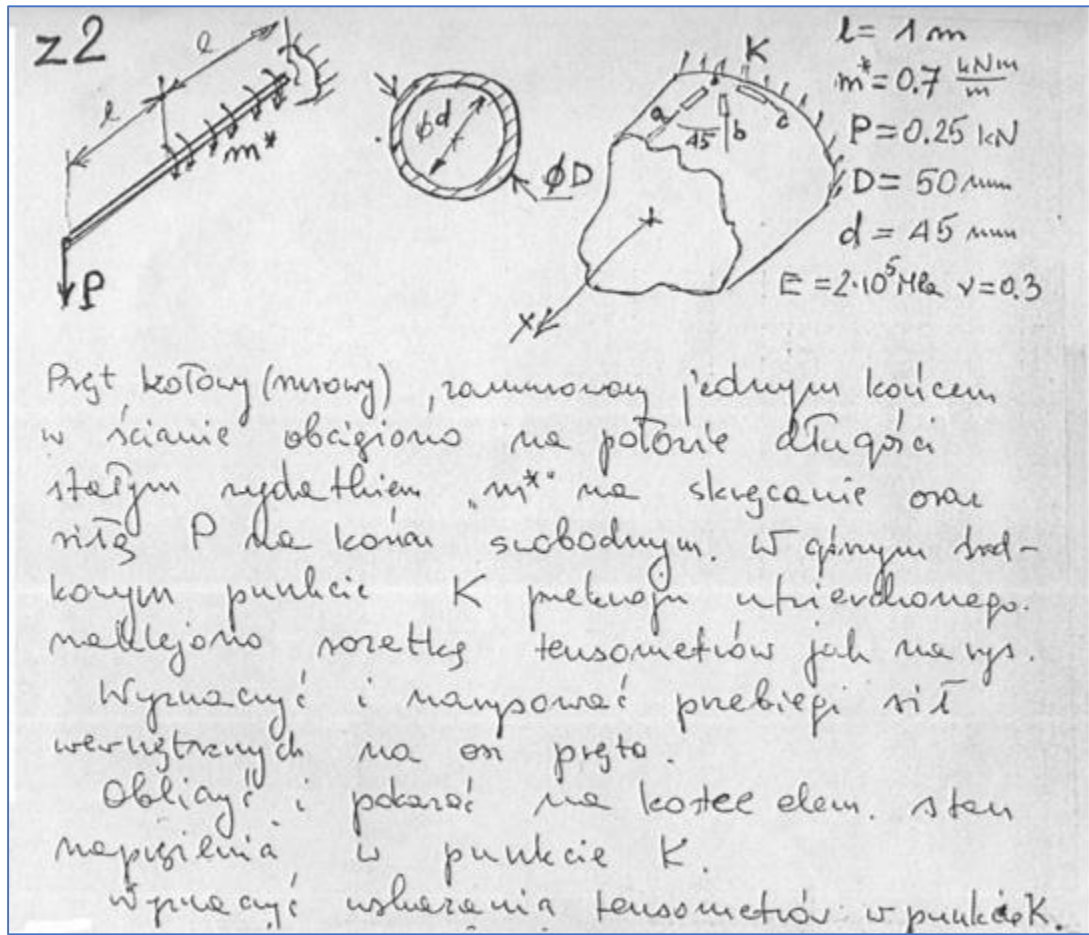 z2
l
l
m*
P
ϕd
ϕD
K
a
45
b
c
x
l = 1 m
m* = 0.7 kNm/m
P = 0.25 kN
D = 50 mm
d = 45 mm
E = 2·10⁵ MPa ν = 0.3
Pręt kołowy (rurowy), zamurowany jednym końcem
w ścianie obciążono na połowie długości
stałym wydatkiem „m*" na skręcanie oraz
siłą P na końcu swobodnym. W górnym środ-
kowym punkcie K przekroju utwierdzonego
naklejono rozetkę tensometrów jak na rys.
Wyznaczyć i narysować przebiegi sił
wewnętrznych na osi pręta.
Obliczyć i pokazać na kostce elem. stan
naprężenia w punkcie K.
Wyznaczyć wskazania tensometrów w punkcie K.